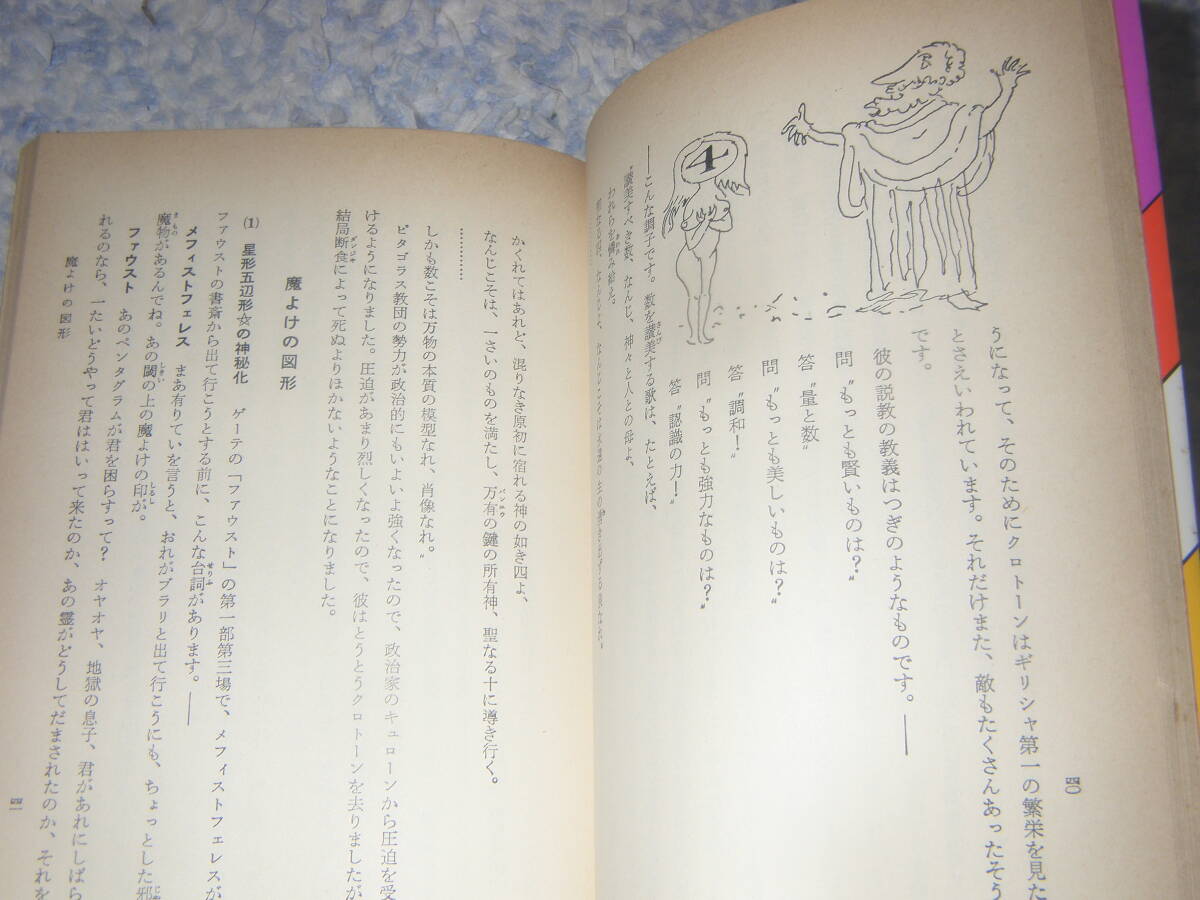 うになって、そのためにクロトーンはギリシャ第一の繁栄を見た
とさえいわれています。それだけまた、敵もたくさんあったそう
です。
彼の説教の教義はつぎのようなものです。――
問 〝もっとも賢いものは？〟
答 〝量と数〟
問 〝もっとも美しいものは？〟
答 〝調和！〟
問 〝もっとも強力なものは？〟
答 〝認識の力！〟
――こんな調子です。数を讃美する歌は、たとえば、
〝讃美すべき数、なんじ、神々と人との母よ、
われらを憐み給え。
4
四〇
かくれてはあれど、混りなき原初に宿れる神の如き四よ、
なんじこそは、一さいのものを満たし、万有の鍵の所有神、聖なる十に導き行く。
…………
しかも数こそは万物の本質の模型なれ、肖像なれ。〟
ピタゴラス教団の勢力が政治的にもいよいよ強くなったので、政治家のキュローンから圧迫を受
けるようになりました。圧迫があまり烈しくなったので、彼はとうとうクロトーンを去りましたが
結局断食によって死ぬよりほかないようなことになりました。
魔よけの図形
(1) 星形五辺形☆の神秘化 ゲーテの「ファウスト」の第一部第三場で、メフィストフェレスが
ファウストの書斎から出て行こうとする前に、こんな台詞があります。――
メフィストフェレス まあ有りていを言うと、おれがブラリと出て行こうにも、ちょっとした邪
魔物があるんでね。あの閾の上の魔よけの印が。
ファウスト あのペンタグラムが君を困らすって？ オヤオヤ、地獄の息子、君があれにしばら
れるのなら、一たいどうやって君ははいって来たのか、あの霊がどうしてだまされたのか、それを
魔よけの図形
四一